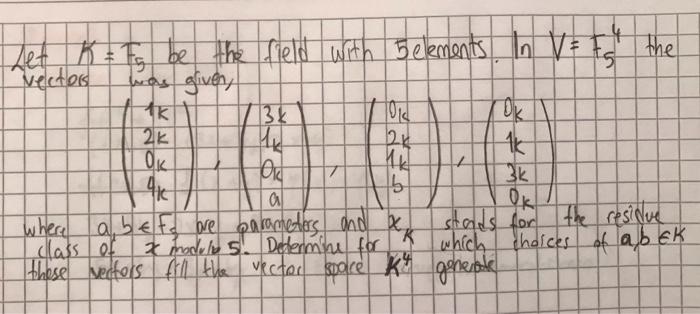 Let K = F5 be the field with 5 elements. In V = F5^4 the
vectors was given,
(1K 2K 0K 4K), (3K 1K 0K a), (0K 2K 1K b), (0K 1K 3K 0K)
where a,b ∈ F5 are parameters, and xK stads for the residue
class of x modulo 5. Determine for which choices of a,b ∈ K
these vectors fill the vector space K^4 generate